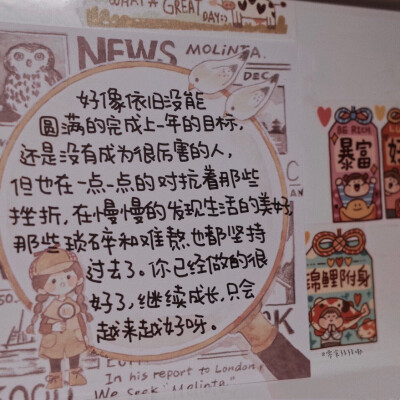 WHAT A GREAT
DAY
NEWS MOLINTA.
DEC
好像依旧没能
圆满的完成上一年的目标，
还是没有成为很厉害的人，
但也在一点一点的对抗着那些
挫折，在慢慢的发现生活的美好
那些琐碎和难熬也都坚持
过去了。你已经做的很
好了，继续成长，只会
越来越好呀。
In his report to London,
We seek "Malinta."
BIG RICH
暴富
好
锦鲤附身